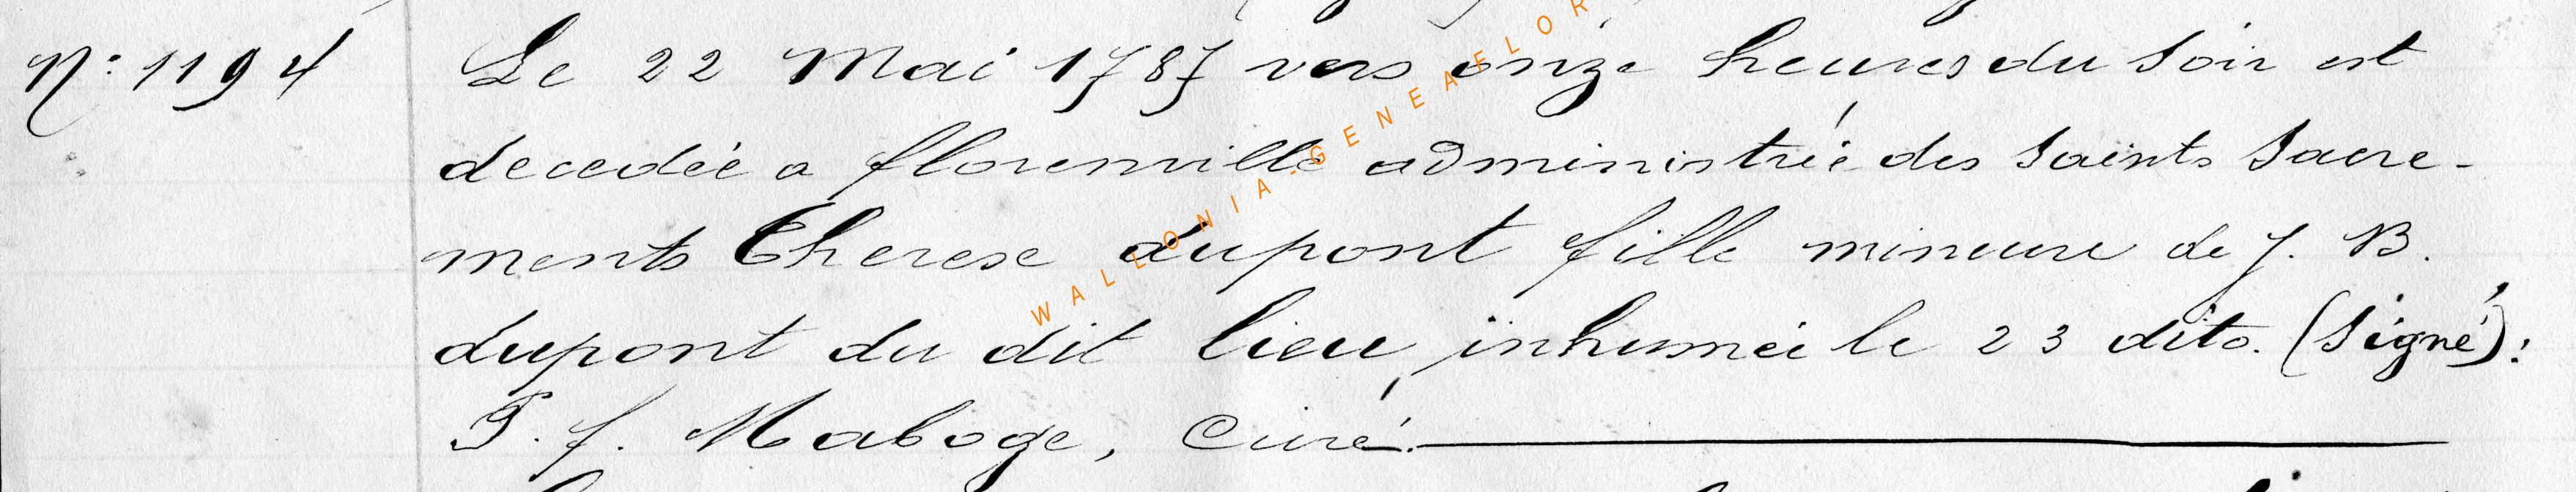 N: 1194 Le 22 Mai 1787 vers onze heures du soir est
decedée a florenville administrée des Saints Sacre-
ments Therese dupont fille mineure de J. B.
dupont du dit lieu, inhumée le 23 dito. (Signé):
P. f. Maboge, Curé.
WALLONIA-GENEAFLOR